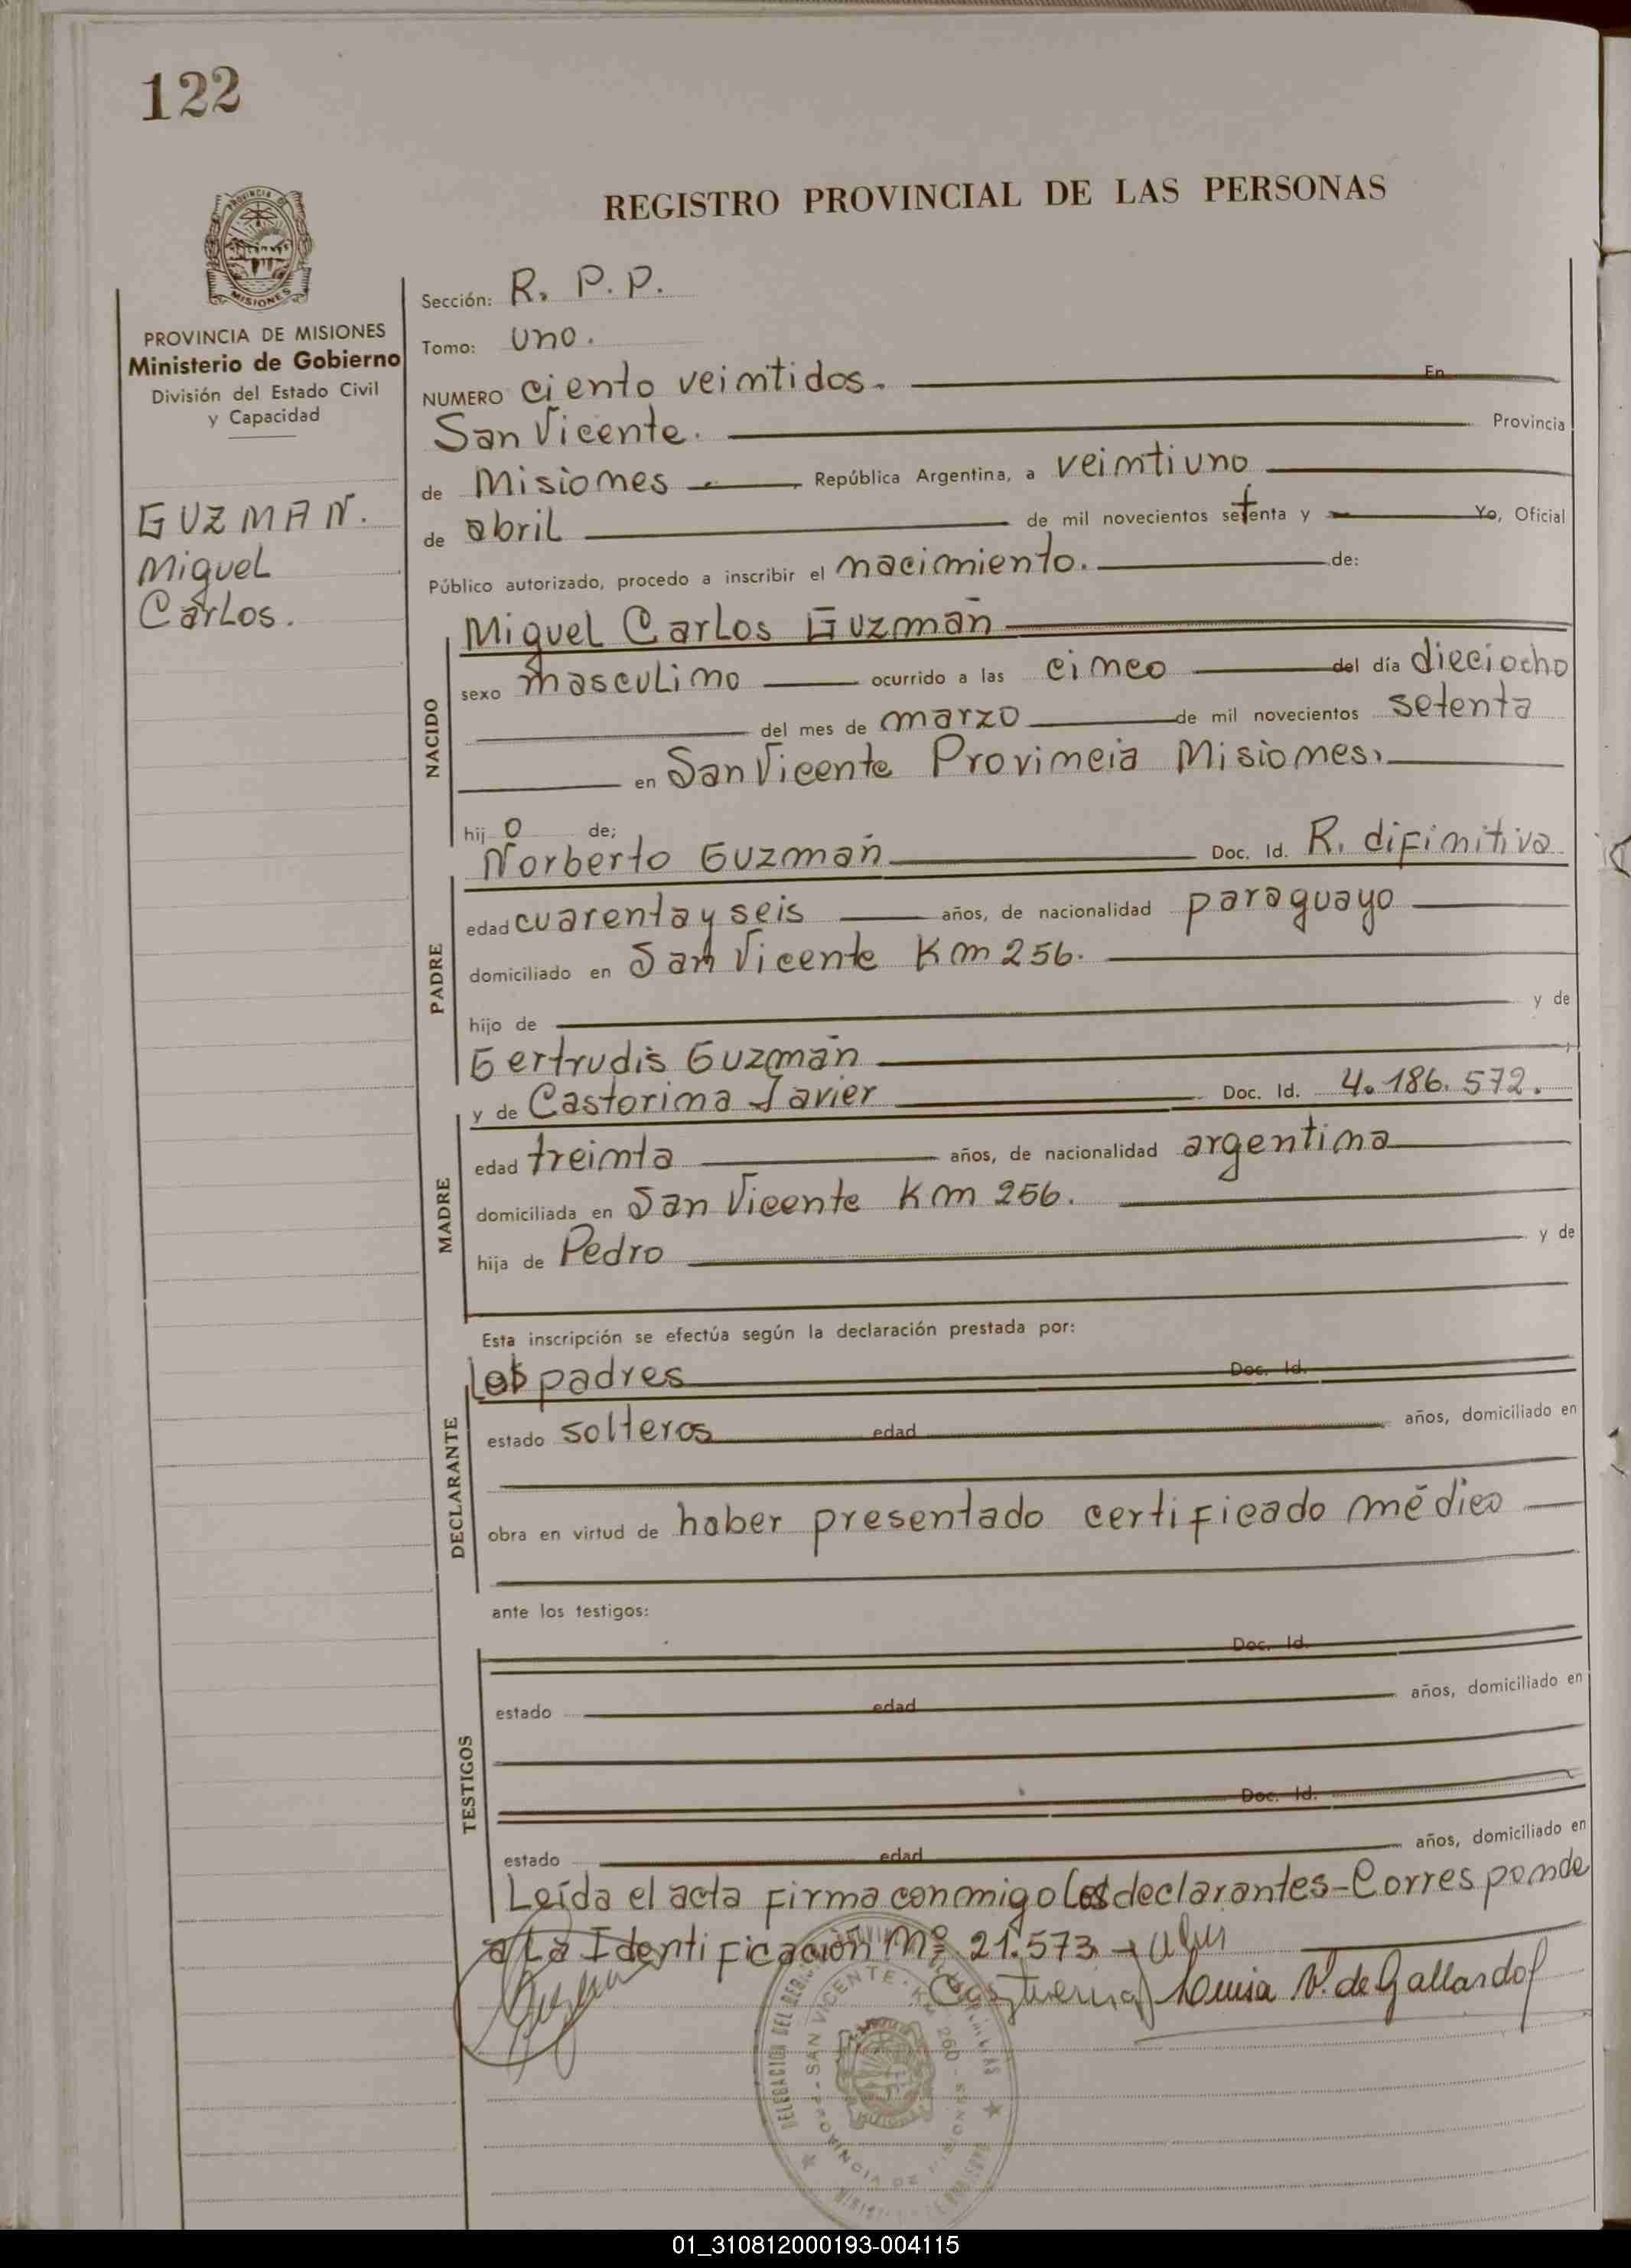 122
REGISTRO PROVINCIAL DE LAS PERSONAS
PROVINCIA DE MISIONES
Ministerio de Gobierno
División del Estado Civil
y Capacidad
GUZMAN.
Miguel
Carlos.
Sección: R. P. P.
Tomo: uno.
NUMERO ciento veintidos. En
San Vicente. Provincia
de Misiones República Argentina, a veintiuno
de abril de mil novecientos setenta y Yo, Oficial
Público autorizado, procedo a inscribir el nacimiento. de:
NACIDO
Miguel Carlos Guzmán
sexo masculino ocurrido a las cinco del día dieciocho
del mes de marzo de mil novecientos setenta
en San Vicente Provincia Misiones.
hijo de;
PADRE
Norberto Guzmán Doc. Id. R. difinitiva
edad cuarenta y seis años, de nacionalidad paraguayo
domiciliado en San Vicente Km 256.
hijo de y de
Gertrudis Guzmán
MADRE
y de Castorina Javier Doc. Id. 4.186.572.
edad treinta años, de nacionalidad argentina
domiciliada en San Vicente Km 256.
hija de Pedro y de
Esta inscripción se efectúa según la declaración prestada por:
DECLARANTE
los padres Doc. Id.
estado solteros edad años, domiciliado en
obra en virtud de haber presentado certificado médico
ante los testigos:
TESTIGOS
Doc. Id.
estado edad años, domiciliado en
Doc. Id.
estado edad años, domiciliado en
Leída el acta firma conmigo los declarantes-Corresponde
a La Identificación Nº 21.573
Luisa V. de Gallardo
SAN VICENTE - Km 260 - PROVINCIA DE MISIONES
01_310812000193-004115